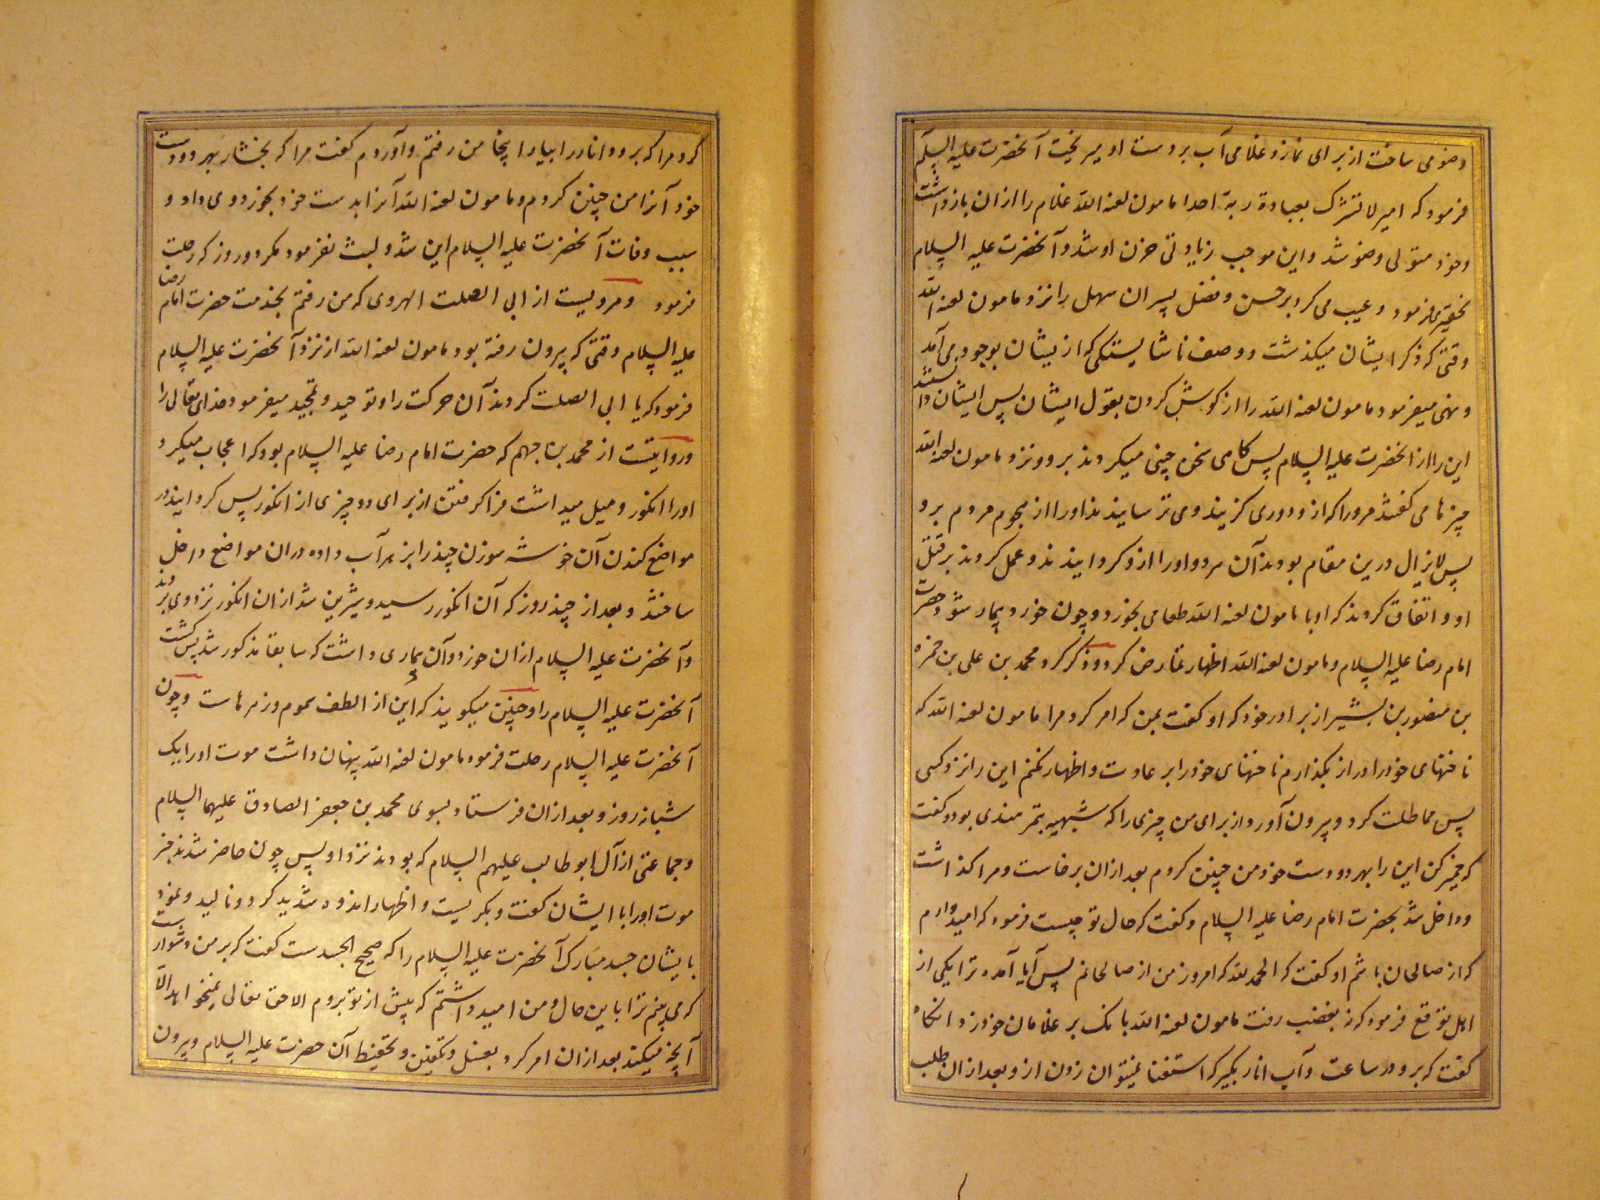 وضو می ساخت از برای نماز و غلامی آب بر دست او میریخت آنحضرت علیه السلام
فرمود که امیر لا تشرک بعبادة ربه احدا مامون لعنه الله غلام را از ان باز داشت
و خود متولی وضو شد و این موجب زیادتی حزن او شد و آنحضرت علیه السلام
و عیب می کرد بر حسن و فضل پسران سهل را نزد مامون لعنه الله
وقتی که ذکر ایشان میکذشت و وصف ناشایستکی که از یشان بوجود می آمد
و نهی میفرمود مامون لعنه الله را از کوش کردن بقول ایشان پس ایشان دانستند
این را از آنحضرت علیه السلام پس کامی سخن چینی میکردند برو نزد مامون لعنه الله
چیزها می کفتند مرورا که ازو دوری کزیند و می ترسانیدند اورا از هجوم مردم برو
پس لایزال درین مقام بودند آن مردو اورا ازو کردانیدند و عمل کردند بر قتل
او و اتفاق کردند که او با مامون لعنه الله طعامی بخورد و چون خورد بیمار شود حضرت
امام رضا علیه السلام و مامون لعنه الله اظهار تمارض کرد و ذکر کرد محمد بن علی بن حمزه
بن منصور بن بشیر از برادر خود که او کفت بمن که امر کرد مرا مامون لعنه الله که
ناخنهای خود را دراز بکذارم ناخنهای خود را بر عادت و اظهار نکنم این را نزد کسی
پس مماطلت کرد و بیرون آورد از برای من چیزی را که شبهیه بتمر هندی بود و کفت
که خمیر کن این را بهر دو دست خود من چنین کردم بعد از ان برخاست و مرا کذاشت
و داخل شد بحضرت امام رضا علیه السلام و کفت که حال تو چیست فرمود که امیدوارم
که از صالحان باشم او کفت که الحمد لله که امروز من از صالحانم پس آیا آمده ترا یکی از
اهل توقع فرمود که نه بغضب رفت مامون لعنه الله بانک بر غلامان خود زد و انکاه
کفت که برو در ساعت و آب انار بکیر که استغنا نمیتوان زدن ازو بعد از ان طلب
کرد مرا که برو و انار را بیار اینجا من رفتم و آوردم کفت مرا که بفشار بهر دو دست
خود آنرا من چنین کردم و مامون لعنه الله آنرا بدست خود بخورد وی داد و
سبب وفات آنحضرت علیه السلام این شد و لبث نفرمود مکر دو روز که رحلت
فرمود و مرویست از ابی الصلت الهروی که من رفتم بخدمت حضرت امام رضا
علیه السلام وقتی که بیرون رفته بود مامون لعنه الله از نزد آنحضرت علیه السلام
فرمود که یا ابی الصلت کردند آن حرکت را و توحید و تمجید میفرمود خدای تعالی را
و روایتست از محمد بن جهم که حضرت امام رضا علیه السلام بود که اعجاب میکرد
اورا انکور و میل میداشت فرا کرفتن از برای دو چیزی از انکور پس کردانیدند در
مواضع کندن آن خوشه سوزن چند را بزهر آب داده در ان مواضع داخل
ساختند و بعد از چند روز که آن انکور رسید و شیرین شد از ان انکور نزد وی بردند
و آنحضرت علیه السلام از ان خورد و آن بیماری داشت که سابقا مذکور شد پس کشت
آنحضرت علیه السلام را و چنین میکویند که این از الطف سموم و زهرهاست و چون
آنحضرت علیه السلام رحلت فرمود مامون لعنه الله پنهان داشت موت اورا یک
شبانه روز و بعد از ان فرستاد بسوی محمد بن جعفر الصادق علیهما السلام
و جماعتی از آل ابو طالب علیهم السلام که بودند نزد او پس چون حاضر شدند خبر
موت اورا با ایشان کفت و بکریست و اظهار اندوه شدید کرد و نالید و نمود
بایشان جسد مبارک آنحضرت علیه السلام را که صحیح الجسدست کفت که بر من دشوارست
که می بینم ترا باین حال و من امید داشتم که پیش از تو بروم الا حق تعالی نمیخواهد الا
آنچه میکند بعد از ان امر کرد بغسل و تکفین و تحنیط آن حضرت علیه السلام و بیرون